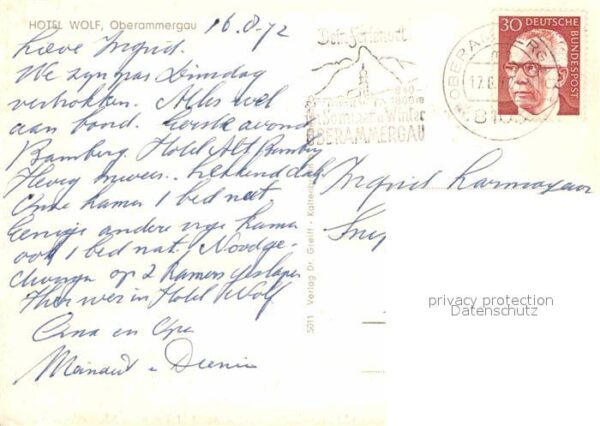 HOTEL WOLF, Oberammergau
16-8-72
Lieve Ingrid.
We zyn pas Dinsdag
vertrokken. Alles wel
aan boord. Eerste avond
Bamberg. Hotel Alt Bamberg
Hevig onweer. lekkend dak
Onze kamer 1 bed nat
Eenige andere vrye kamer
ook 1 bed nat. Noodge-
dwongen op 2 kamers geslapen
Hier weer in Hotel Wolf
Oma en Opa
Dein Ferienort
850
1800 m
Sommer u Winter
OBERAMMERGAU
OBERAMMERG
17.8.
810
30 DEUTSCHE
BUNDESPOST
5011 Verlag Dr. Greiff
Ingrid
privacy protection
Datenschutz